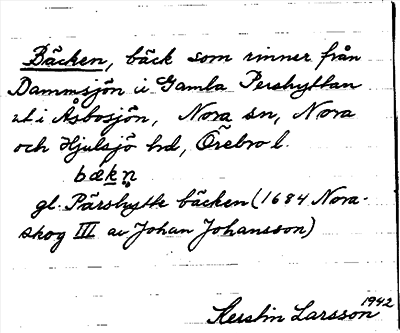 Bäcken, bäck som rinner från
Dammsjön i Gamla Pershyttan
ut i Åsbosjön, Nora sn, Nora
och Hjulsjö hd, Örebro l.
bækn̥
gl. Pärshytte bäcken (1684 Nora-
skog III av Johan Johansson)
Kerstin Larsson 1942